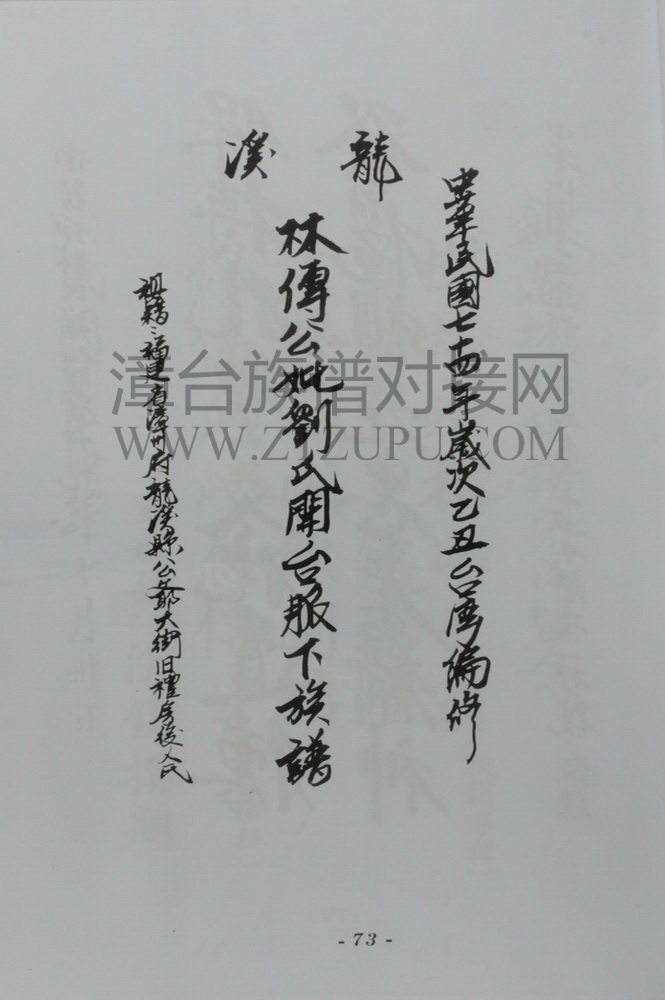 中華民國七十四年歲次乙丑台湾編修
龍溪
林傳公妣劉氏開台服下族譜
祖籍：福建省漳州府龍溪縣公爺大街旧禮房後人氏
漳台族谱对接网
WWW.ZTZUPU.COM
- 73 -